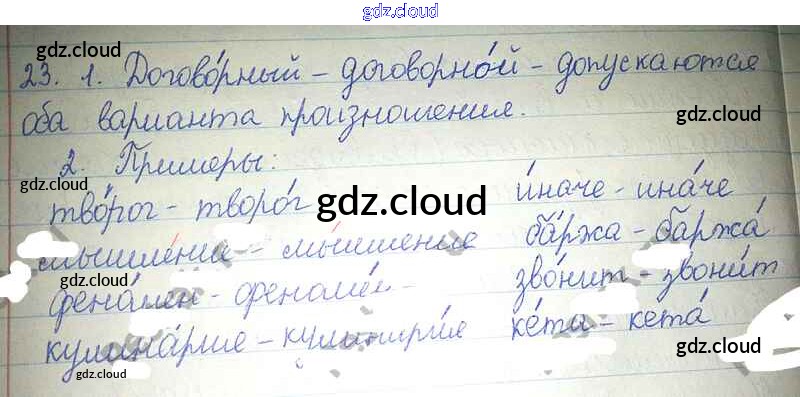 gdz.cloud
gdz.cloud gdz.cloud
23. 1. Догово́рный – договорно́й – допускаются
оба варианта произношения.
gdz.cloud gdz.cloud
2. Примеры:
gdz.cloud
тво́рог – творо́г
и́наче – ина́че
gdz.cloud
мышле́ние – мы́шление
ба́ржа – баржа́
фено́мен – феноме́н
зво́нит – звони́т
кулина́рия – кулинари́я
ке́та – кета́
gdz.cloud
gdz.cloud
gdz.cloud